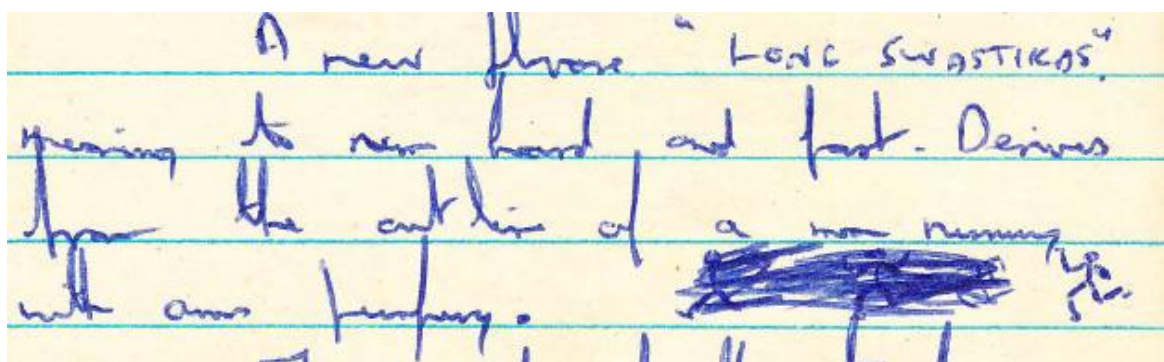 A new phrase "LONG SWASTIKAS".
meaning to run hard and fast. Derives
from the outline of a man running
with arms pumping.